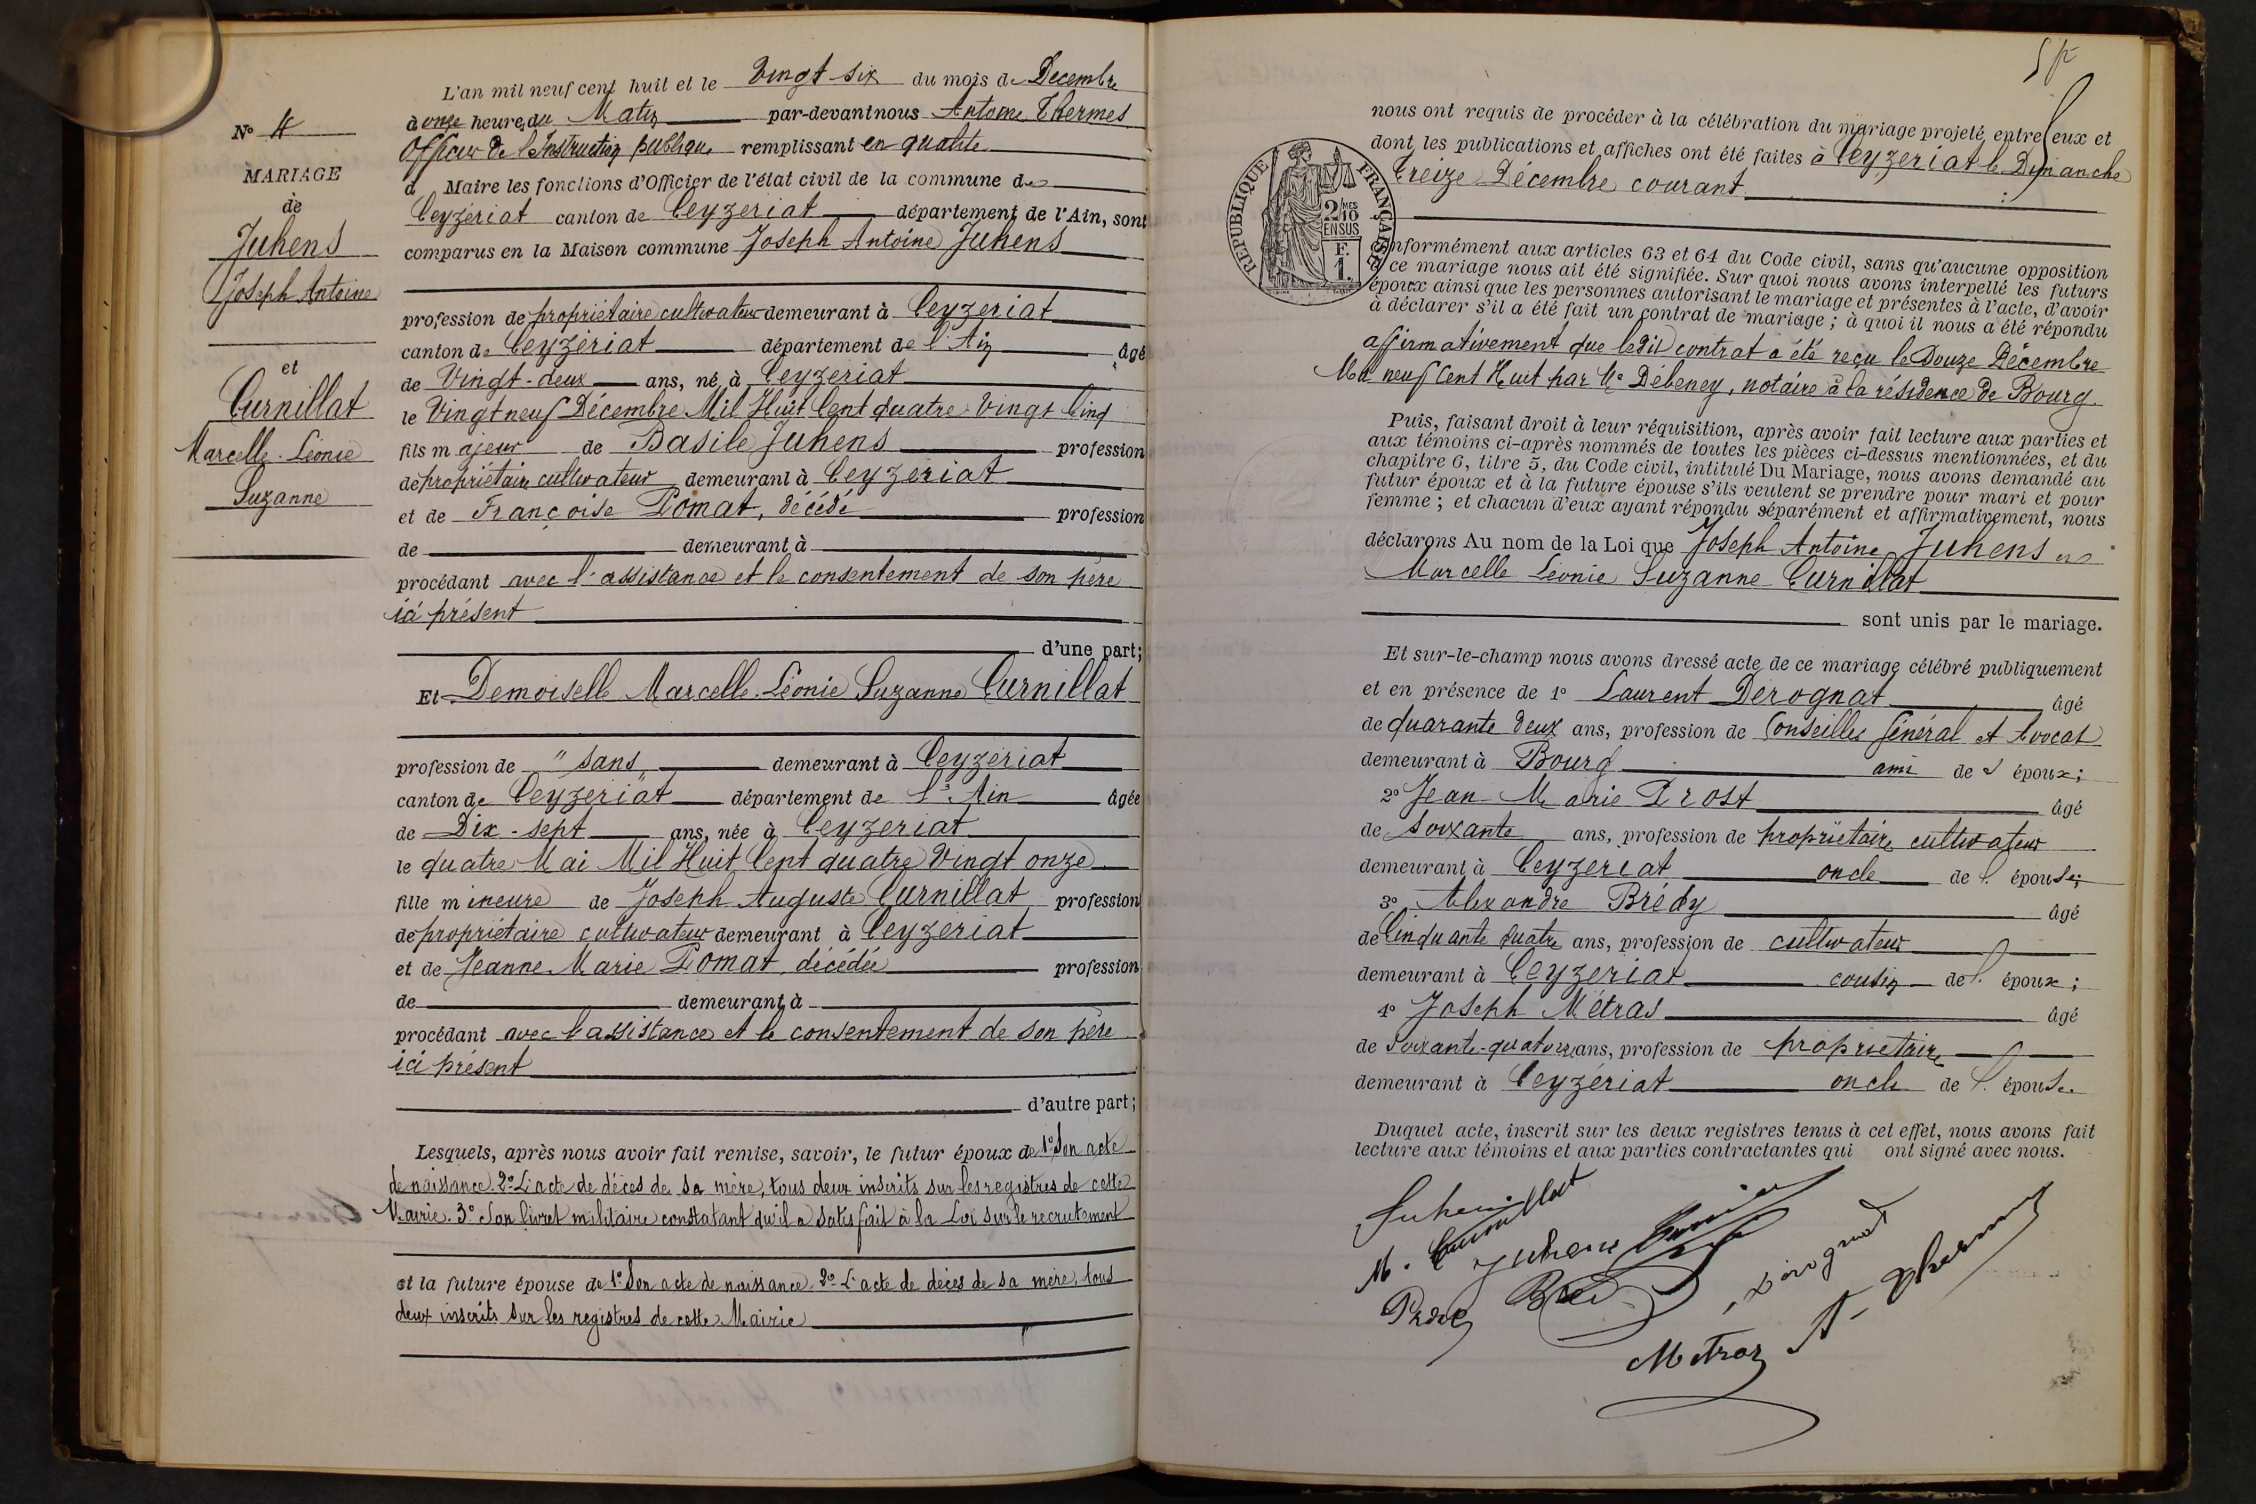 L'an mil neuf cent huit et le Vingt-six du mois de Décembre
à onze heures du Matin par-devant nous Antoine Thermes
Officier de l'Instruction publique remplissant en qualité
de Maire les fonctions d'Officier de l'état civil de la commune de
Ceyzériat canton de Ceyzériat département de l'Ain, sont
comparus en la Maison commune Joseph Antoine Juhens
profession de propriétaire cultivateur demeurant à Ceyzériat
canton de Ceyzériat département de l'Ain âgé
de Vingt-deux ans, né à Ceyzériat
le Vingt neuf Décembre Mil Huit Cent quatre Vingt Cinq
fils majeur de Basile Juhens profession
de propriétaire cultivateur demeurant à Ceyzériat
et de Françoise Pomat, décédé profession
de demeurant à
procédant avec l'assistance et le consentement de son père
ici présent
d'une part;
Et Demoiselle Marcelle Léonie Suzanne Curnillat
profession de " sans demeurant à Ceyzériat
canton de Ceyzériat département de l'Ain âgée
de Dix-sept ans, née à Ceyzériat
le quatre Mai Mil Huit Cent quatre Vingt onze
fille mineure de Joseph Auguste Curnillat profession
de propriétaire cultivateur demeurant à Ceyzériat
et de Jeanne Marie Pomat, décédée profession
de demeurant à
procédant avec l'assistance et le consentement de son père
ici présent
d'autre part;
Lesquels, après nous avoir fait remise, savoir, le futur époux de 1º Son acte
de naissance. 2º L'acte de décès de sa mère, tous deux inscrits sur les registres de cette
Mairie. 3º Son livret militaire constatant qu'il a satisfait à la Loi sur le recrutement
et la future épouse de 1º Son acte de naissance 2º L'acte de décès de sa mère, tous
deux inscrits sur les registres de cette Mairie
Nº 4
MARIAGE
de
Juhens
Joseph Antoine
et
Curnillat
Marcelle Léonie
Suzanne
nous ont requis de procéder à la célébration du mariage projeté entre eux et
dont les publications et affiches ont été faites à Ceyzériat le Dimanche
Treize Décembre courant
RÉPUBLIQUE FRANÇAISE
2/10 MES
EN SUS
F.
1.
conformément aux articles 63 et 64 du Code civil, sans qu'aucune opposition
à ce mariage nous ait été signifiée. Sur quoi nous avons interpellé les futurs
époux ainsi que les personnes autorisant le mariage et présentes à l'acte, d'avoir
à déclarer s'il a été fait un contrat de mariage; à quoi il nous a été répondu
affirmativement que ledit contrat a été reçu le Douze Décembre
Mil neuf Cent Huit par Me Débeney, notaire à la résidence de Bourg.
Puis, faisant droit à leur réquisition, après avoir fait lecture aux parties et
aux témoins ci-après nommés de toutes les pièces ci-dessus mentionnées, et du
chapitre 6, titre 5, du Code civil, intitulé Du Mariage, nous avons demandé au
futur époux et à la future épouse s'ils veulent se prendre pour mari et pour
femme; et chacun d'eux ayant répondu séparément et affirmativement, nous
déclarons Au nom de la Loi que Joseph Antoine Juhens et
Marcelle Léonie Suzanne Curnillat
sont unis par le mariage.
Et sur-le-champ nous avons dressé acte de ce mariage célébré publiquement
et en présence de 1º Laurent Derognat âgé
de quarante deux ans, profession de Conseiller Général et Avocat
demeurant à Bourg ami de l'époux;
2º Jean Marie Prost âgé
de soixante ans, profession de propriétaire cultivateur
demeurant à Ceyzériat oncle de l'épouse;
3º Alexandre Brédy âgé
de Cinquante quatre ans, profession de cultivateur
demeurant à Ceyzériat cousin de l'époux;
4º Joseph Métras âgé
de soixante-quatorze ans, profession de propriétaire
demeurant à Ceyzériat oncle de l'épouse.
Duquel acte, inscrit sur les deux registres tenus à cet effet, nous avons fait
lecture aux témoins et aux parties contractantes qui ont signé avec nous.
Juhens
M. Curnillat
Juhens
Prost
Derognat
A. Thermes
Metras